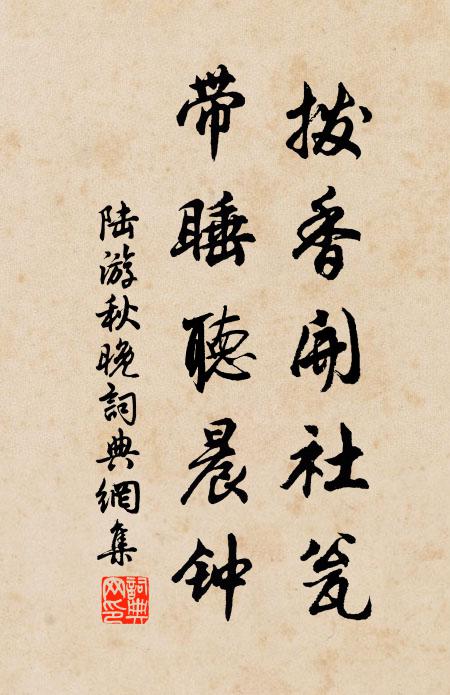 拨香開社瓮
带睡聽晨钟
陆游秋晚詞典網集
詞典
网印